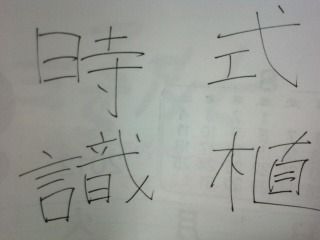 時 式
識 植